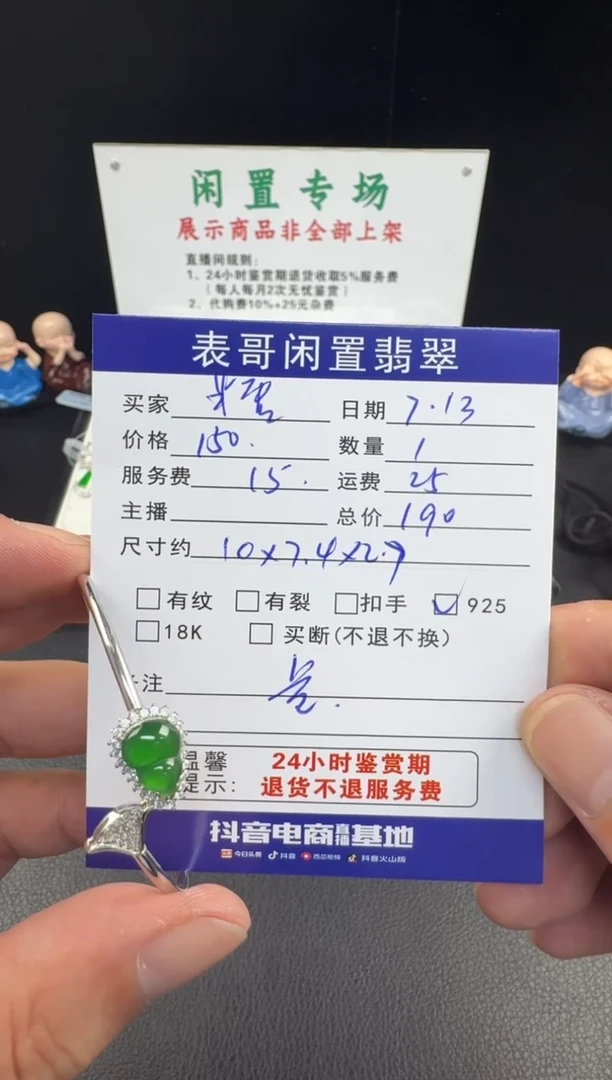 闲置专场
展示商品非全部上架
直播间规则：
1、24小时鉴赏期退货收取5%服务费
（每人每月2次无忧鉴赏）
2、代购费10%+25元杂费
表哥闲置翡翠
买家 日期 7.13
价格 150. 数量 1
服务费 15. 运费 25
主播 总价 190
尺寸约 10x7.4x2.9
有纹 有裂 扣手 925
18K 买断(不退不换)
注
温馨 24小时鉴赏期
提示: 退货不退服务费
抖音电商直播基地
今日头条 抖音 西瓜视频 抖音火山版